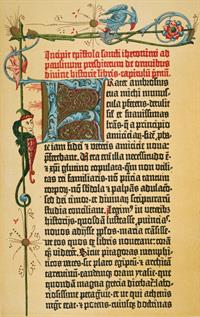 Incipit epistola sancti iheronimi ad
paulinum presbiterum de omnibus
divine historie libris. capitulū prim̄ū.
Frater ambrosius
tua michi munus-
cula perferens. detulit
sil et suavissimas
lr̄as. q̄ a principio
amicicia⁊. fidē pba-
te iam fidei et veteris amicicie nova:
pferebant. Vera eni illa necessitudo ē.
et xpi glutino copulata. qm non utili-
tas rei familiaris. nō pn̄tia tantum
corporū. nō sb̄dola et palpās adulacō.
sed dei timor. et divinarū scripturarū
studia conciliant. Legim⁹ in veterib⁹
historijs. quosdā lustrasse puincias.
novos adisse pplos. maria trāsisse.
ut eos quos ex libris noverant: corā
q⁊ viderēt. Sicut pitagoras memphi-
ticos vates. sic plato egiptū. et architā
tarentinū. eandemq⁊ oram ytalie. que
quondā magna grecia dicebat̄: labo-
riosissime peragvit. et ut qui athenis
mgr̄ erat. et potens. cuiusq⁊ doctrinas